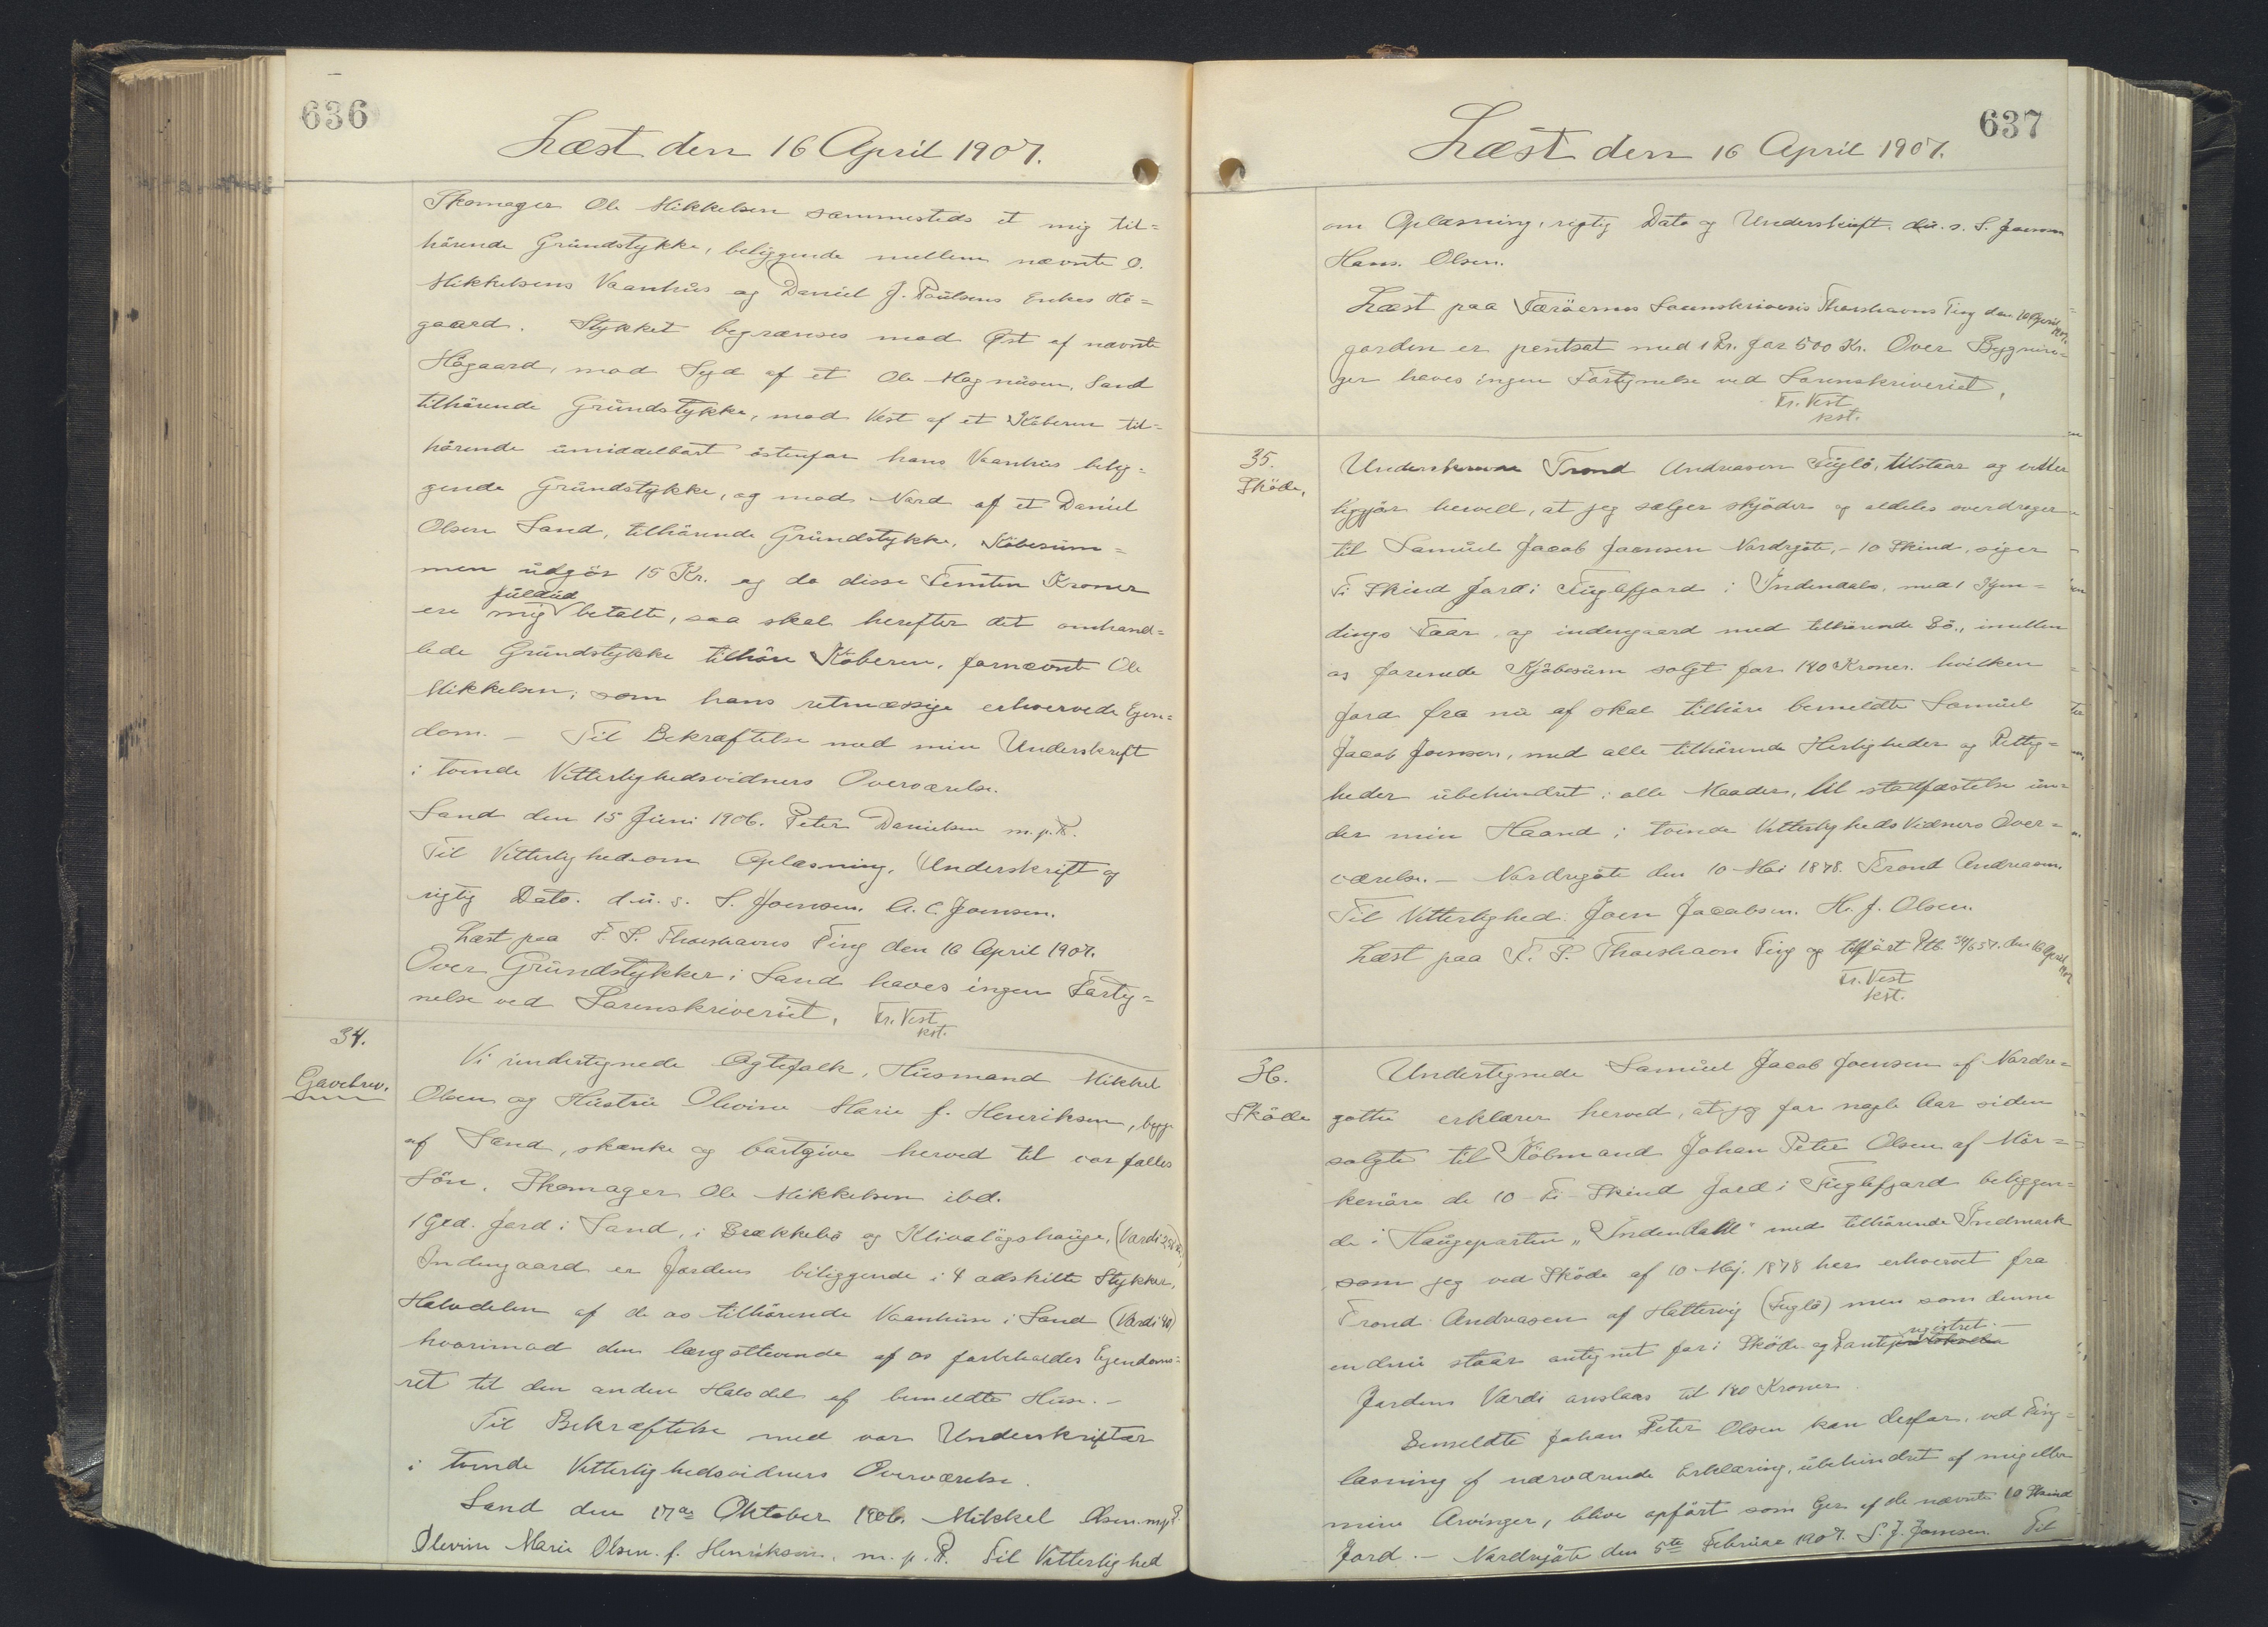 636
Læst den 16 April 1907.
Skomager Ole Mikkelsen sammesteds et mig til=
hörende Grundstykke, beliggende mellem nævnte O.
Mikkelsens Vaanhus og Daniel J. Poulsens Enkes Hö=
gaard. Stykket begrænses mod Øst af nævnte
Högaard, mod Syd af et Ole Magnusen, Sand
tilhörende Grundstykke, mod Vest af et Köberen til=
hörende umiddelbart östenfor hans Vaanhus belig=
gende Grundstykke, og mod Nord af et Daniel
Olsen Sand, tilhörende Grundstykke. Köbesum=
men udgör 15 Kr. og da disse Femten Kroner
ere mig fuldud betalte, saa skal herefter det omhand=
lede Grundstykke tilhöre Köberen, fornævnte Ole
Mikkelsen, som hans retmæssige erhvervede Ejen=
dom. – Til Bekræftelse med min Underskrift
i tvende Vitterlighedsvidners Overværelse.
Sand den 15 Juni 1906. Peter Danielsen m.p.P.
Til Vitterlighed om Oplæsning, Underskrift og
rigtig Dato. d.u.s. S. Joensen. A. C. Joensen.
Læst paa F. S. Thorshavns Ting den 16 April 1907.
Over Grundstykker i Sand haves ingen Forteg=
nelse ved Sorenskriveriet. Fr. Vest
kst.
34.
Gavebrev.
Vi undertegnede Ægtefolk, Husmand Mikkel
Olsen og Hustru Olevine Marie f. Henriksen, begge
af Sand, skænke og bortgive herved til vor fælles
Sön, Skomager Ole Mikkelsen ibd.
1 Gld. Jord i Sand, i Brækkebö og Klivalögshauge, (Værdi 250 Kr)
Indengaard er Jorden beliggende i 4 adskilte Stykker,
Halvdelen af de os tilhörende Vaanhuse i Sand (Værdi 40)
hvorimod den længstlevende af os forbeholdes Ejendoms=
ret til den anden Halvdel af bemeldte Huse. –
Til Bekræftelse med vor Underskrifter
i tvende Vitterlighedsvidners Overværelse.
Sand den 17de Oktober 1906. Mikkel Olsen. m.p.P.
Olevine Marie Olsen. f. Henriksen. m. p. P. Til Vitterlighed
637
Læst den 16 April 1907.
om Oplæsning, rigtig Dato og Underskrift. d.u.s. S. Joensen
Hans. Olsen.
Læst paa Færöernes Sorenskriveris Thorshavns Ting den 16 April 1907.
Jorden er pentsat med 1 Kr. for 500 Kr. Over Bygnin=
ger haves ingen Fortegnelse ved Sorenskriveriet,
Fr. Vest
kst.
35.
Sköde,
Underskrevne Trond Andreasen Fuglö, tilstaar og vitter
liggjör herved, at jeg sælger skjöder og aldeles overdrager
til Samuel Jacob Joensen Nordrgöte, – 10 Skind, siger
Ti Skind Jord i Fuglefjord i Indendals, med 1 Gym=
dings Faar, og indengaard med tilhörende Bö., imellem
os forenede Kjöbesum solgt for 140 Kroner. hvilken
Jord fra nu af skal tilhöre bemeldte Samuel
Jacob Joensen, med alle tilhörende Herligheder og Rettig=
heder ubehindret i alle Maader, til stadfæstelse un=
der min Haand i tvende Vitterligheds Vidners Over=
værelse. – Nordregöte den 10 Mai 1878. Trond Andreasen.
Til Vitterlighed: Joen Jacobsen. H. J. Olsen.
Læst paa F. S. Thorshavn Ting og tilfört Ptb. den 16 April 1907
Fr. Vest
kst.
36.
Sköde
Undertegnede Samuel Jacob Joensen af Nordre=
gotte erklærer herved, at jeg for nogle Aar siden
solgte til Köbmand Johan Peter Olsen af Mör=
kenöre de 10 – Ti – Skind Jord i Fuglefjord beliggen=
de i Haugeparten „Indendahl" med tilhörende Indmark
som jeg ved Sköde af 10 Maj. 1878 her erhvervet fra
Trond Andreasen af Hattervig (Fuglö) men som denne
endnu staar antegnet for i Sköde- og Panteregistret. –
Jordens Værdi anslaas til 140 Kroner
Bemeldte Johan Peter Olsen kan derfor, ved Ting=
læsning af nærværende Erklæring, ubehindret af mig eller
mine Arvinger, blive opfört som Ejer af de nævnte 10 Skind
Jord. – Nordregöte den 5te Februar 1907. S. J. Joensen. Til